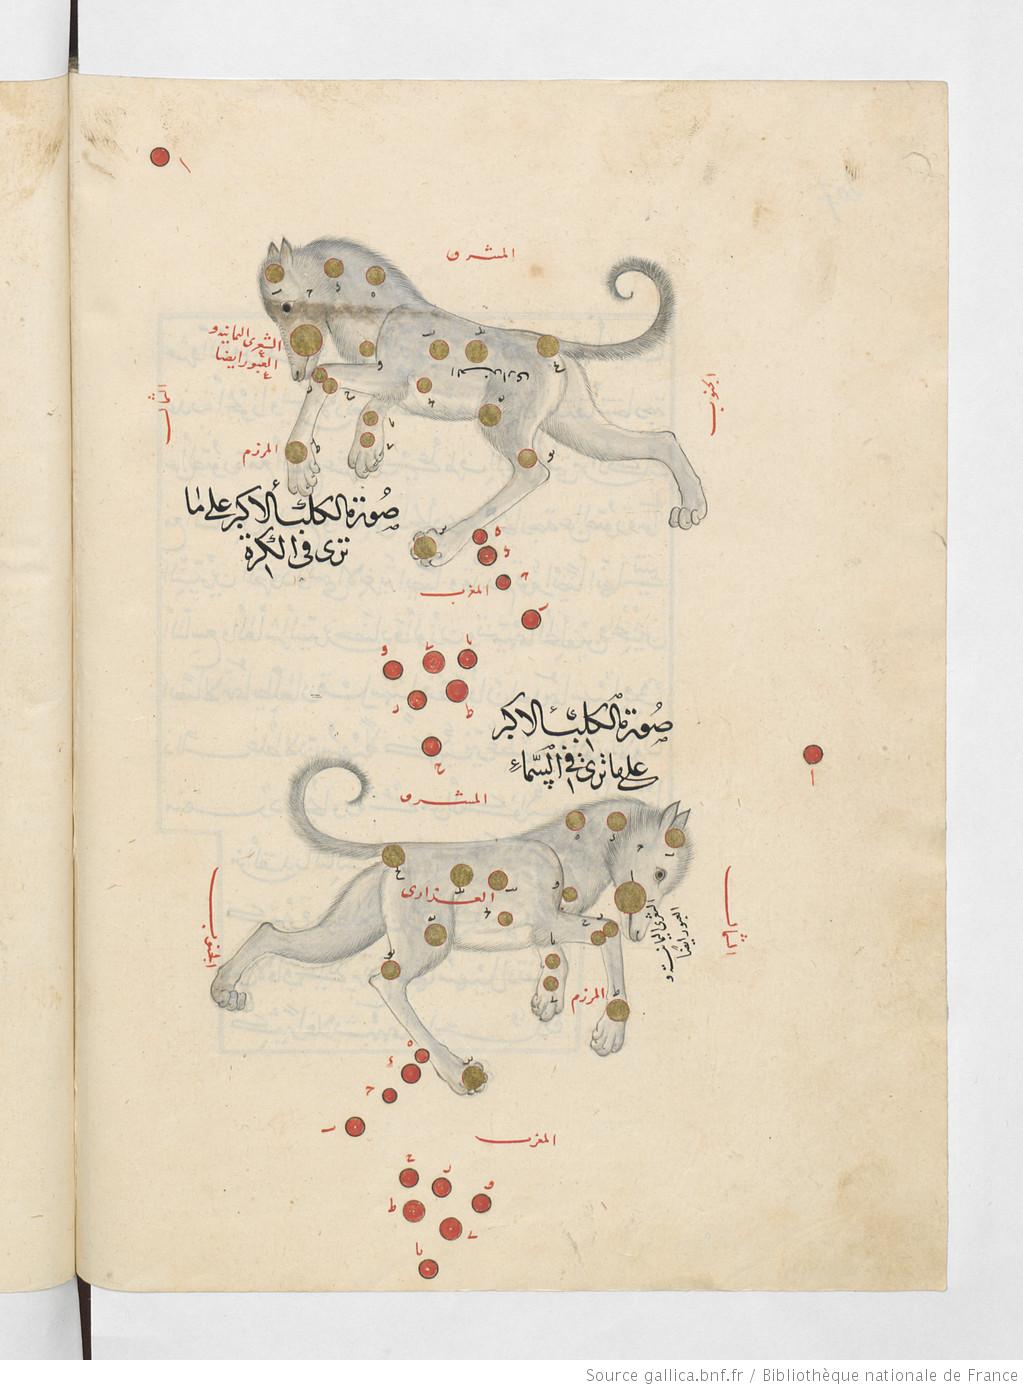 المشرق
الشعرى اليمانية و
العبور ايضا
العذارى
الجنوب
الشمال
المرزم
صورة الكلب الاكبر على ما
ترى فى الكرة
المغرب
صورة الكلب الاكبر
على ما ترى فى السماء
المشرق
العذارى
الشعرى اليمانية و
العبور ايضا
الجنوب
الشمال
المرزم
المغرب
Source gallica.bnf.fr / Bibliothèque nationale de France